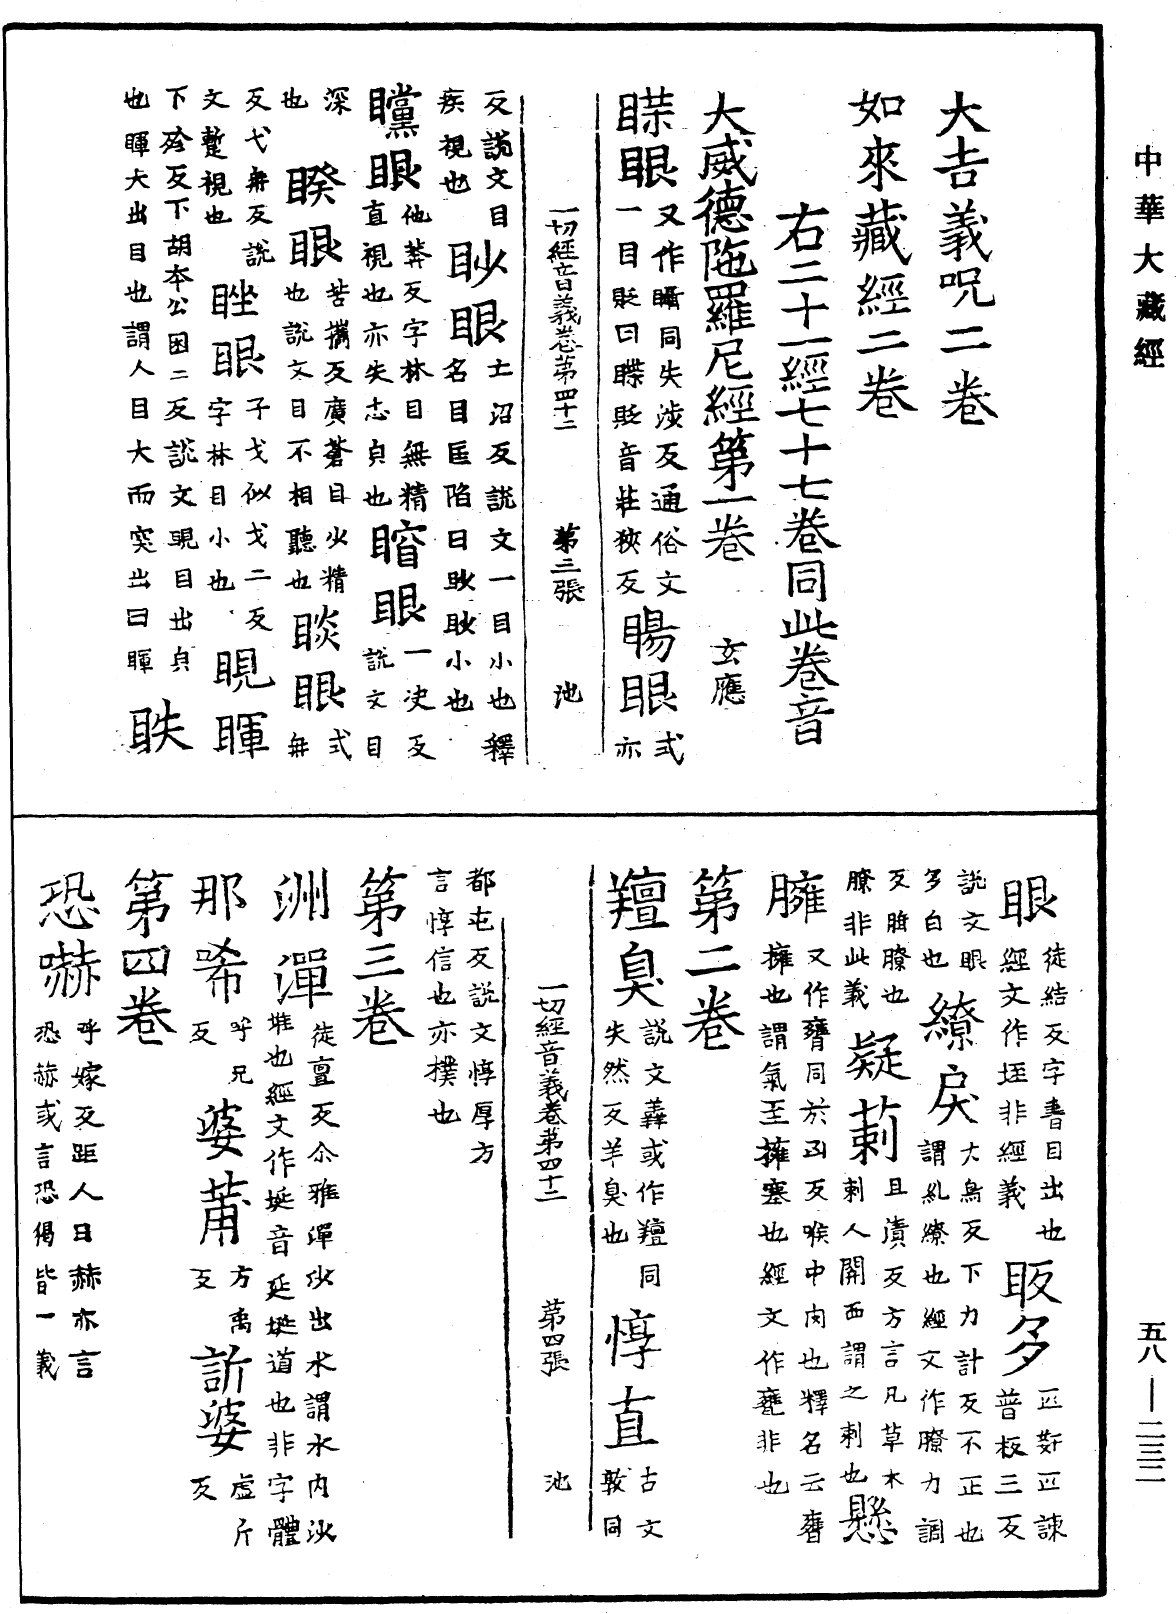 中華大藏經
大吉義呪二卷
如來藏經二卷
右二十一經七十七卷同此卷音
大威德陁羅尼經第一卷 玄應
䁋眼 又作䀹同失涉反通俗文
一目眨曰䁋眨音莊狹反 眲眼 式
亦
一切經音義卷第四十二 第三張 池
反說文目
疾視也 眇眼 亡沼反說文一目小也釋
名目匡陷曰眇眇小也
矘眼 他莽反字林目無精
直視也亦失志皃也 䁓眼 一決反
說文目
深
也 睽眼 苦攜反廣蒼目少精
也說文目不相聽也 睒眼 式
冉
反弋冉反說
文蹔視也 睉眼 子戈似戈二反
字林目小也 睍暉
下殄反下胡本公困二反說文睍目出皃
也暉大出目也謂人目大而突出曰暉 眣
眼 徒結反字書目出也
經文作垤非經義 眅多 匹姧匹諫
普板三反
說文眼
多白也 繚戾 大鳥反下力計反不正也
謂糺繚也經文作膫力調
反脂膫也
膫非此義 疑𦸣 且漬反方言凡草木
刺人關西謂之刺也 懸
臃 又作癰同於凶反喉中肉也釋名云癰
擁也謂氣至擁塞也經文作甕非也
第二卷
羶臭 說文羴或作羶同
失然反羊臭也 惇直 古文
敦同
一切經音義卷第四十二 第四張 池
都屯反說文惇厚方
言惇信也亦樸也
第三卷
洲潬 徒亶反尒雅潬沙出水謂水內沙
堆也經文作埏音延埏道也非字體
那唏 呼兄
反 婆莆 方禹
反 訢婆 虛斤
反
第四卷
恐嚇 呼嫁反距人曰赫亦言
恐赫或言恐愒皆一義
五八—二三二